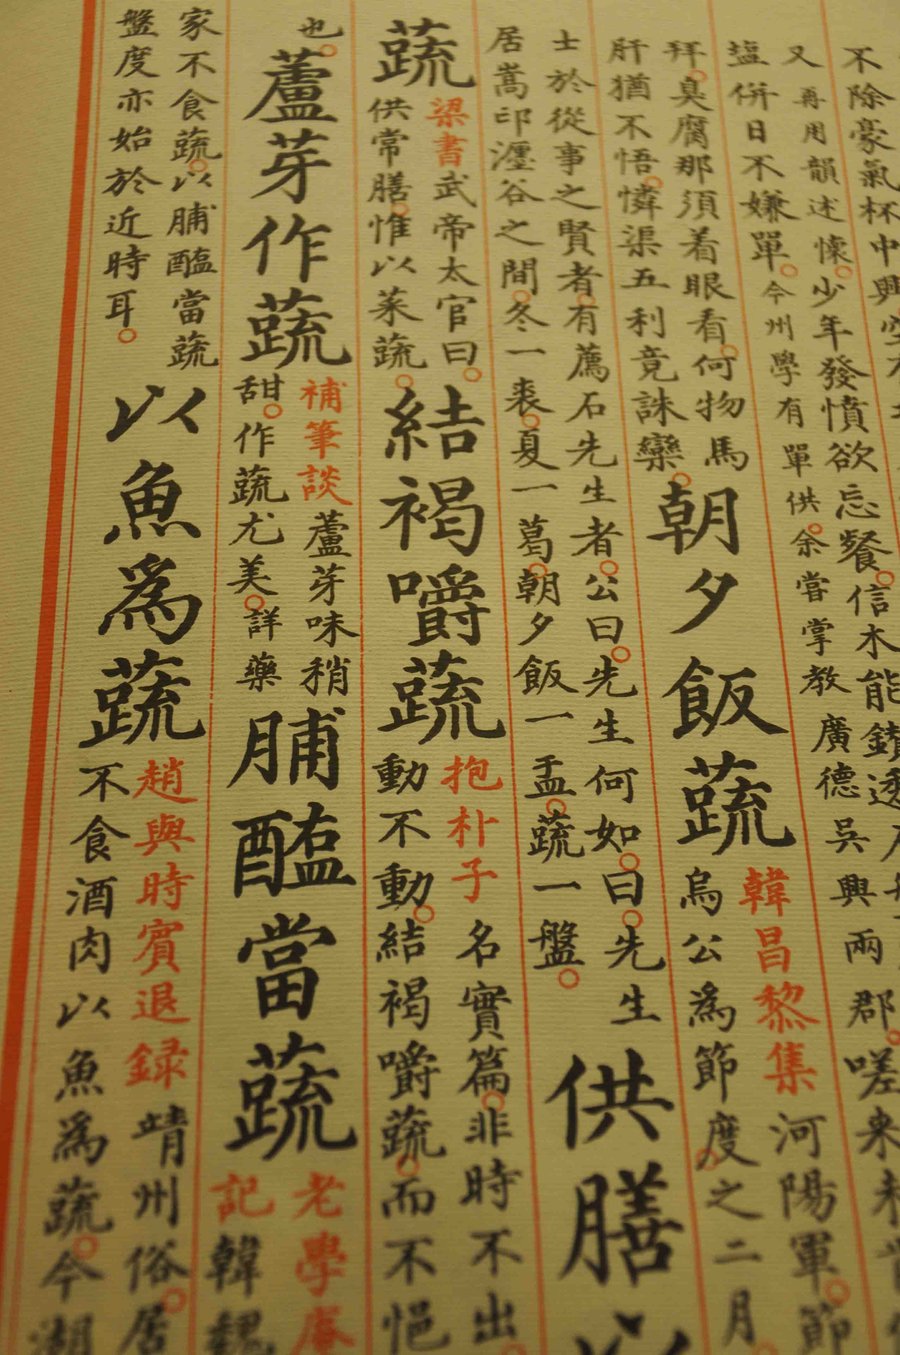 不除豪氣杯中興
又再用韻述懷。少年發憤欲忘餐。信木能鑽透
塩併日不嫌單。今州學有單供。余嘗掌教廣德吳興兩郡。嗟来未
拜。臭腐那須着眼看。何物馬
肝猶不悟。憐渠五利竟誅欒。
朝夕飯蔬
韓昌黎集河陽軍。節
烏公為節度。之二月
士於從事之賢者。有薦石先生者。公曰。先生何如。曰。先生
居嵩卬瀍谷之間。冬一裘。夏一葛。朝夕飯一盂。蔬一盤。
供膳以
蔬
梁書武帝太官曰。
供常膳。惟以菜蔬。
結褐嚼蔬
抱朴子名實篇。非時不出
動不動。結褐嚼蔬。而不悒
也。
蘆芽作蔬
補筆談蘆芽味稍
甜。作蔬尤美。詳藥
脯醢當蔬
老學庵
記韓魏
家不食蔬。以脯醢當蔬
盤度亦始於近時耳。
以魚為蔬
趙與時賓退録靖州俗。居
不食酒肉以魚為蔬。今湖